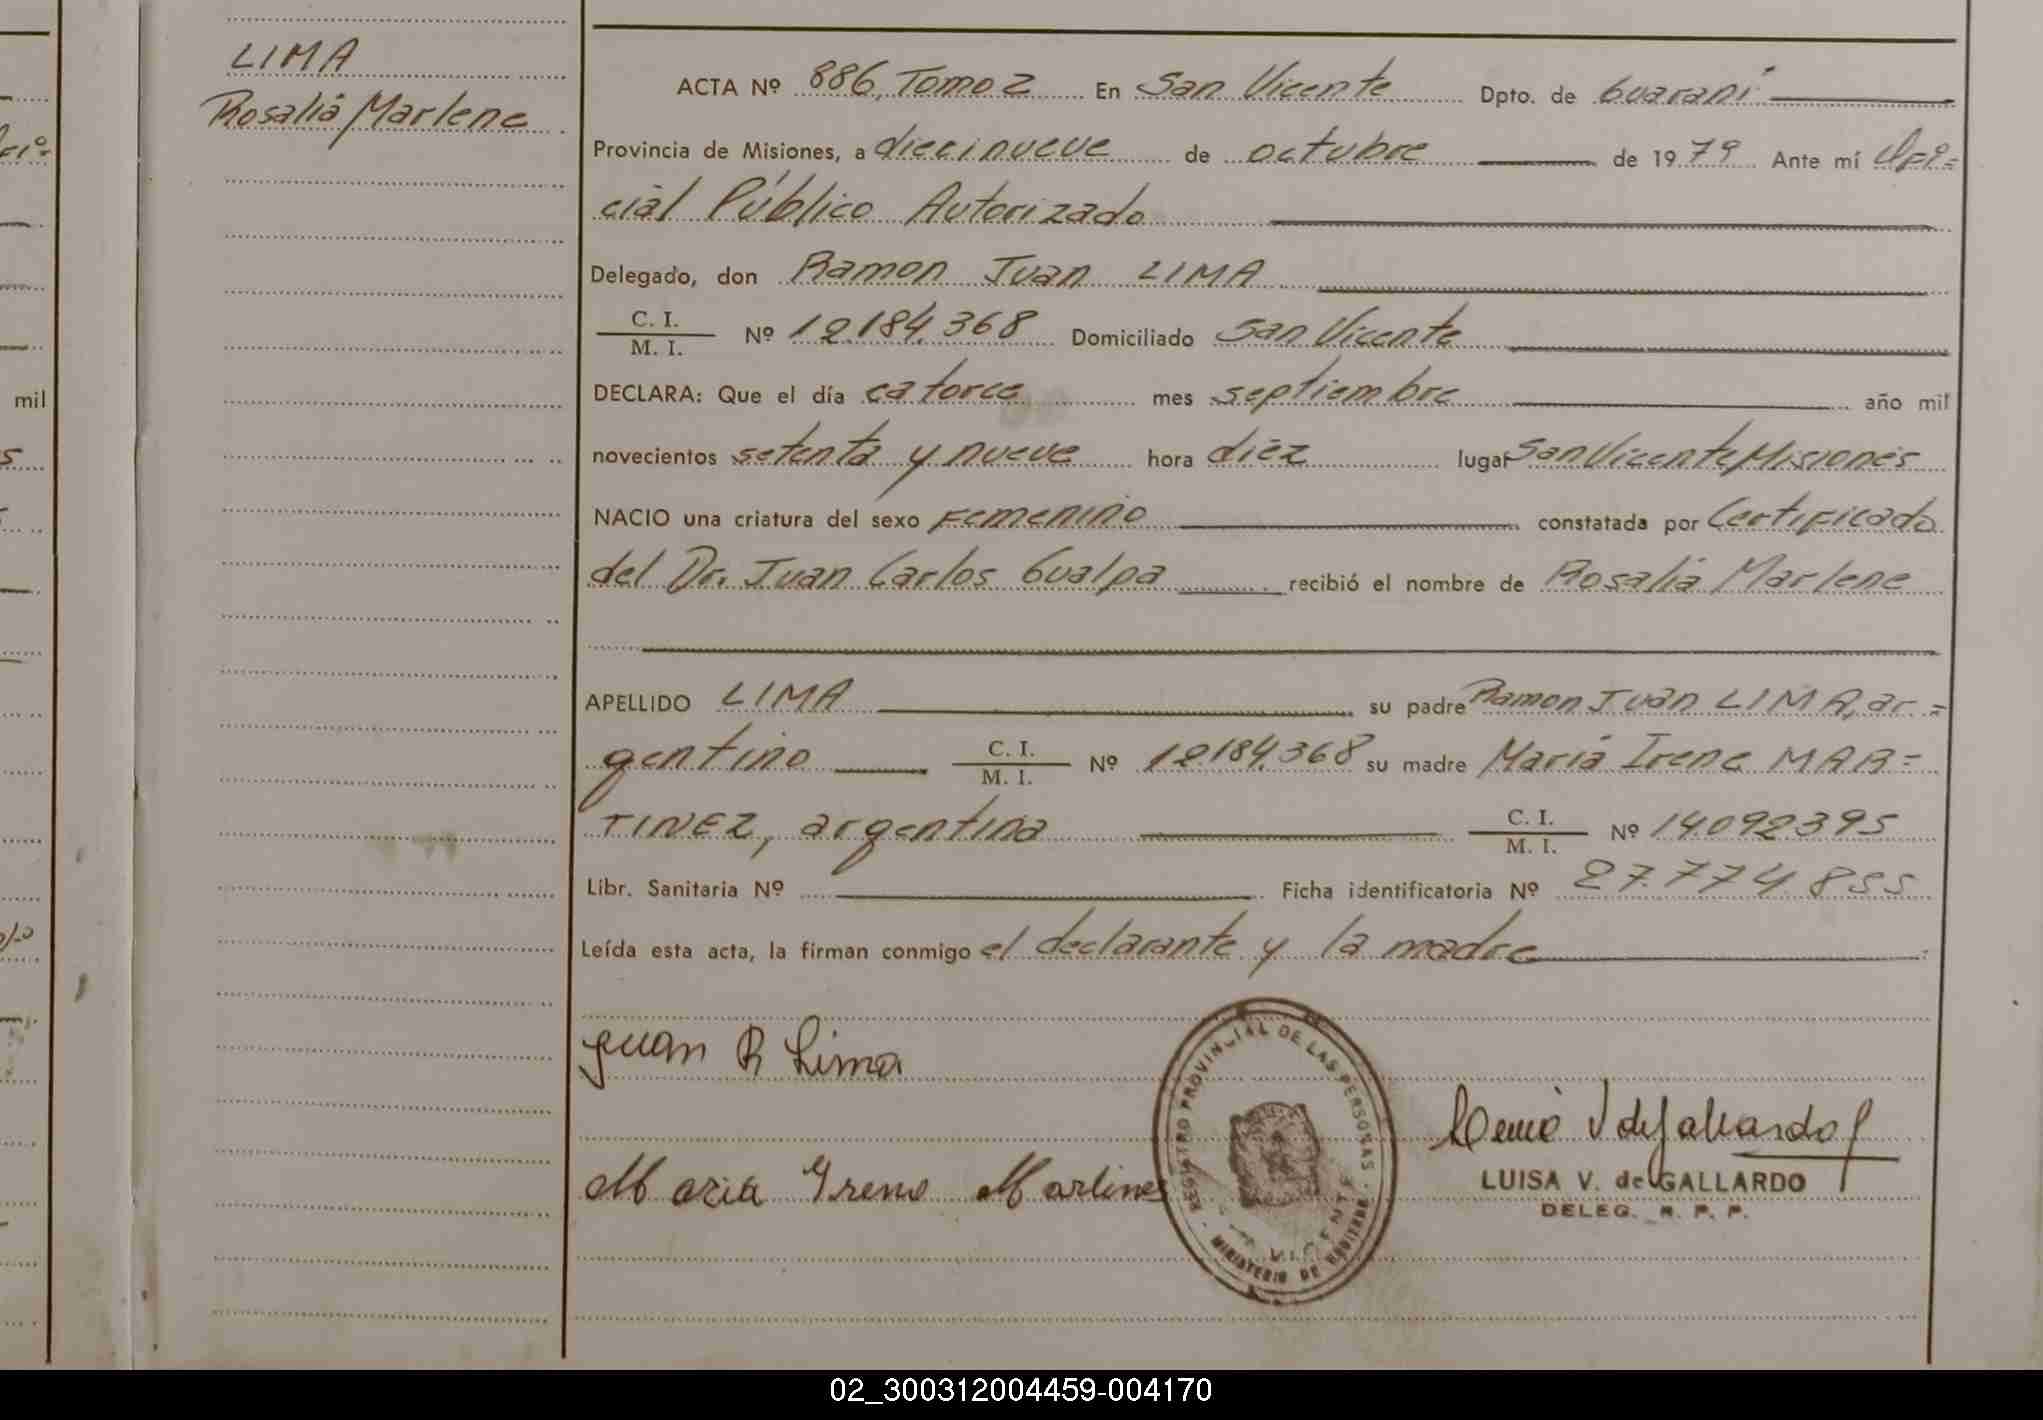 LIMA
Rosaliá Marlene
ACTA Nº 886, Tomo 2 En San Vicente Dpto. de Guaraní
Provincia de Misiones, a diecinueve de octubre de 1979 Ante mí Ofi=
cial Público Autorizado
Delegado, don Ramon Juan LIMA
C. I.
M. I. Nº 12.184.368 Domiciliado San Vicente
DECLARA: Que el día catorce mes septiembre año mil
novecientos setenta y nueve hora diez lugar San Vicente, Misiones
NACIO una criatura del sexo Femenino constatada por Certificado
del Dr. Juan Carlos Gualpa recibió el nombre de Rosaliá Marlene
APELLIDO LIMA su padre Ramon Juan LIMA, ar=
gentino C. I.
M. I. Nº 12184.368 su madre Mariá Irene MAR=
TINEZ, argentina C. I.
M. I. Nº 14.092395
Libr. Sanitaria Nº Ficha identificatoria Nº 27.774.855
Leída esta acta, la firman conmigo el declarante y la madre
Juan R Lima
Maria Irene Martines
REGISTRO PROVINCIAL DE LAS PERSONAS
VICENTE
MINISTERIO DE
V de Gallardo
LUISA V. de GALLARDO
DELEG. R. P. P.
mil
02_300312004459-004170